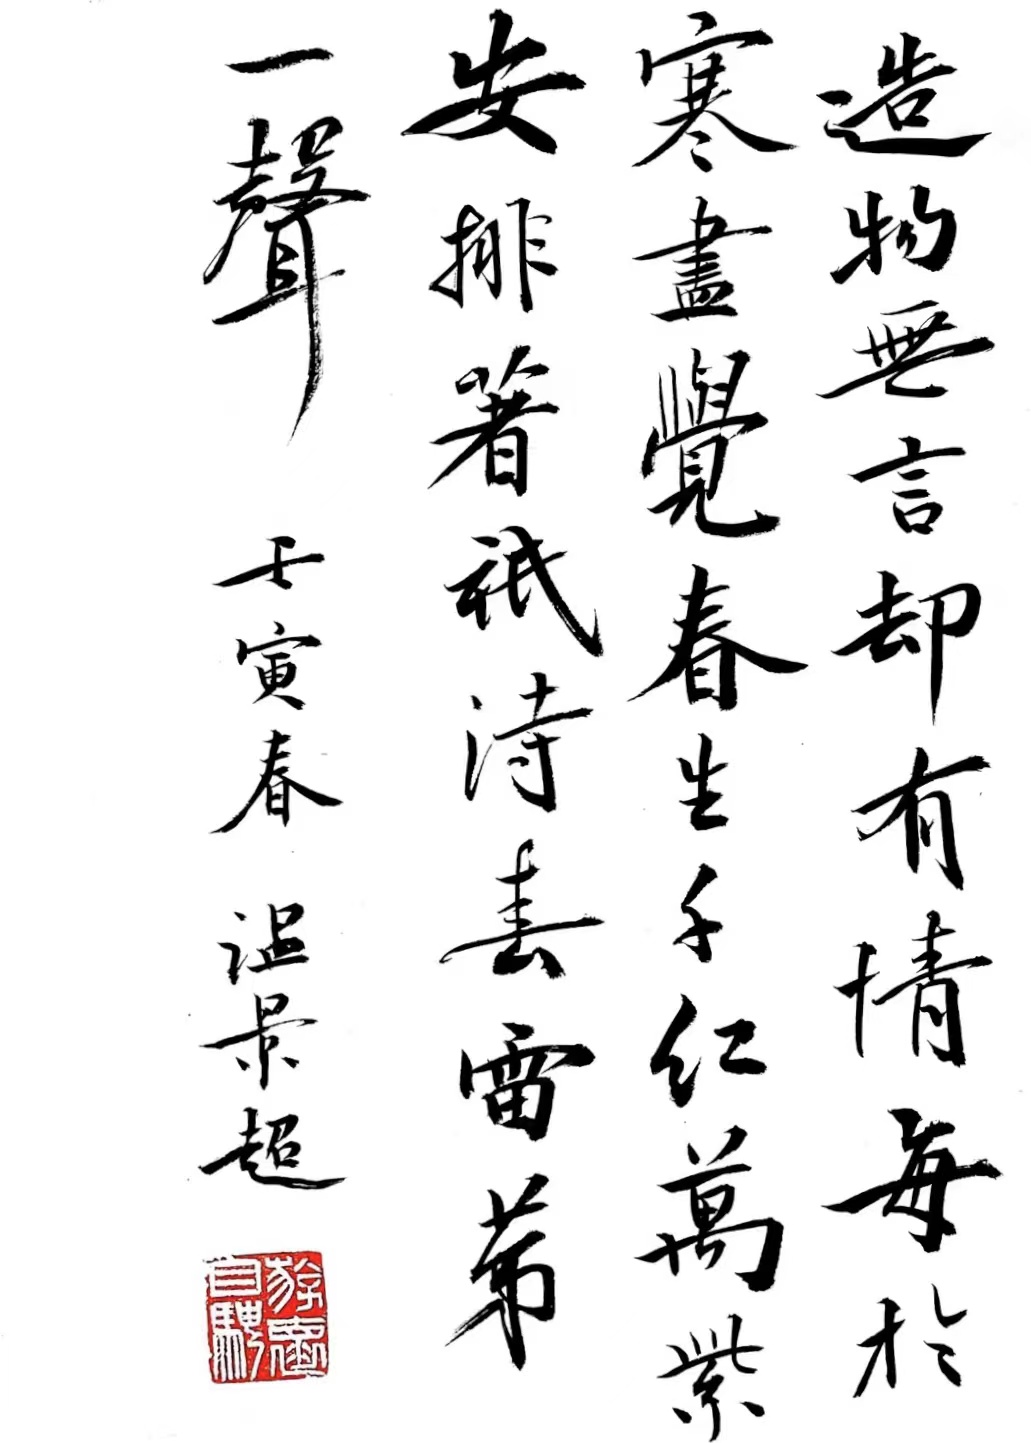 造物無言却有情每於
寒盡覺春生千红萬紫
安排著祇待春雷第
一聲 壬寅春 温景超